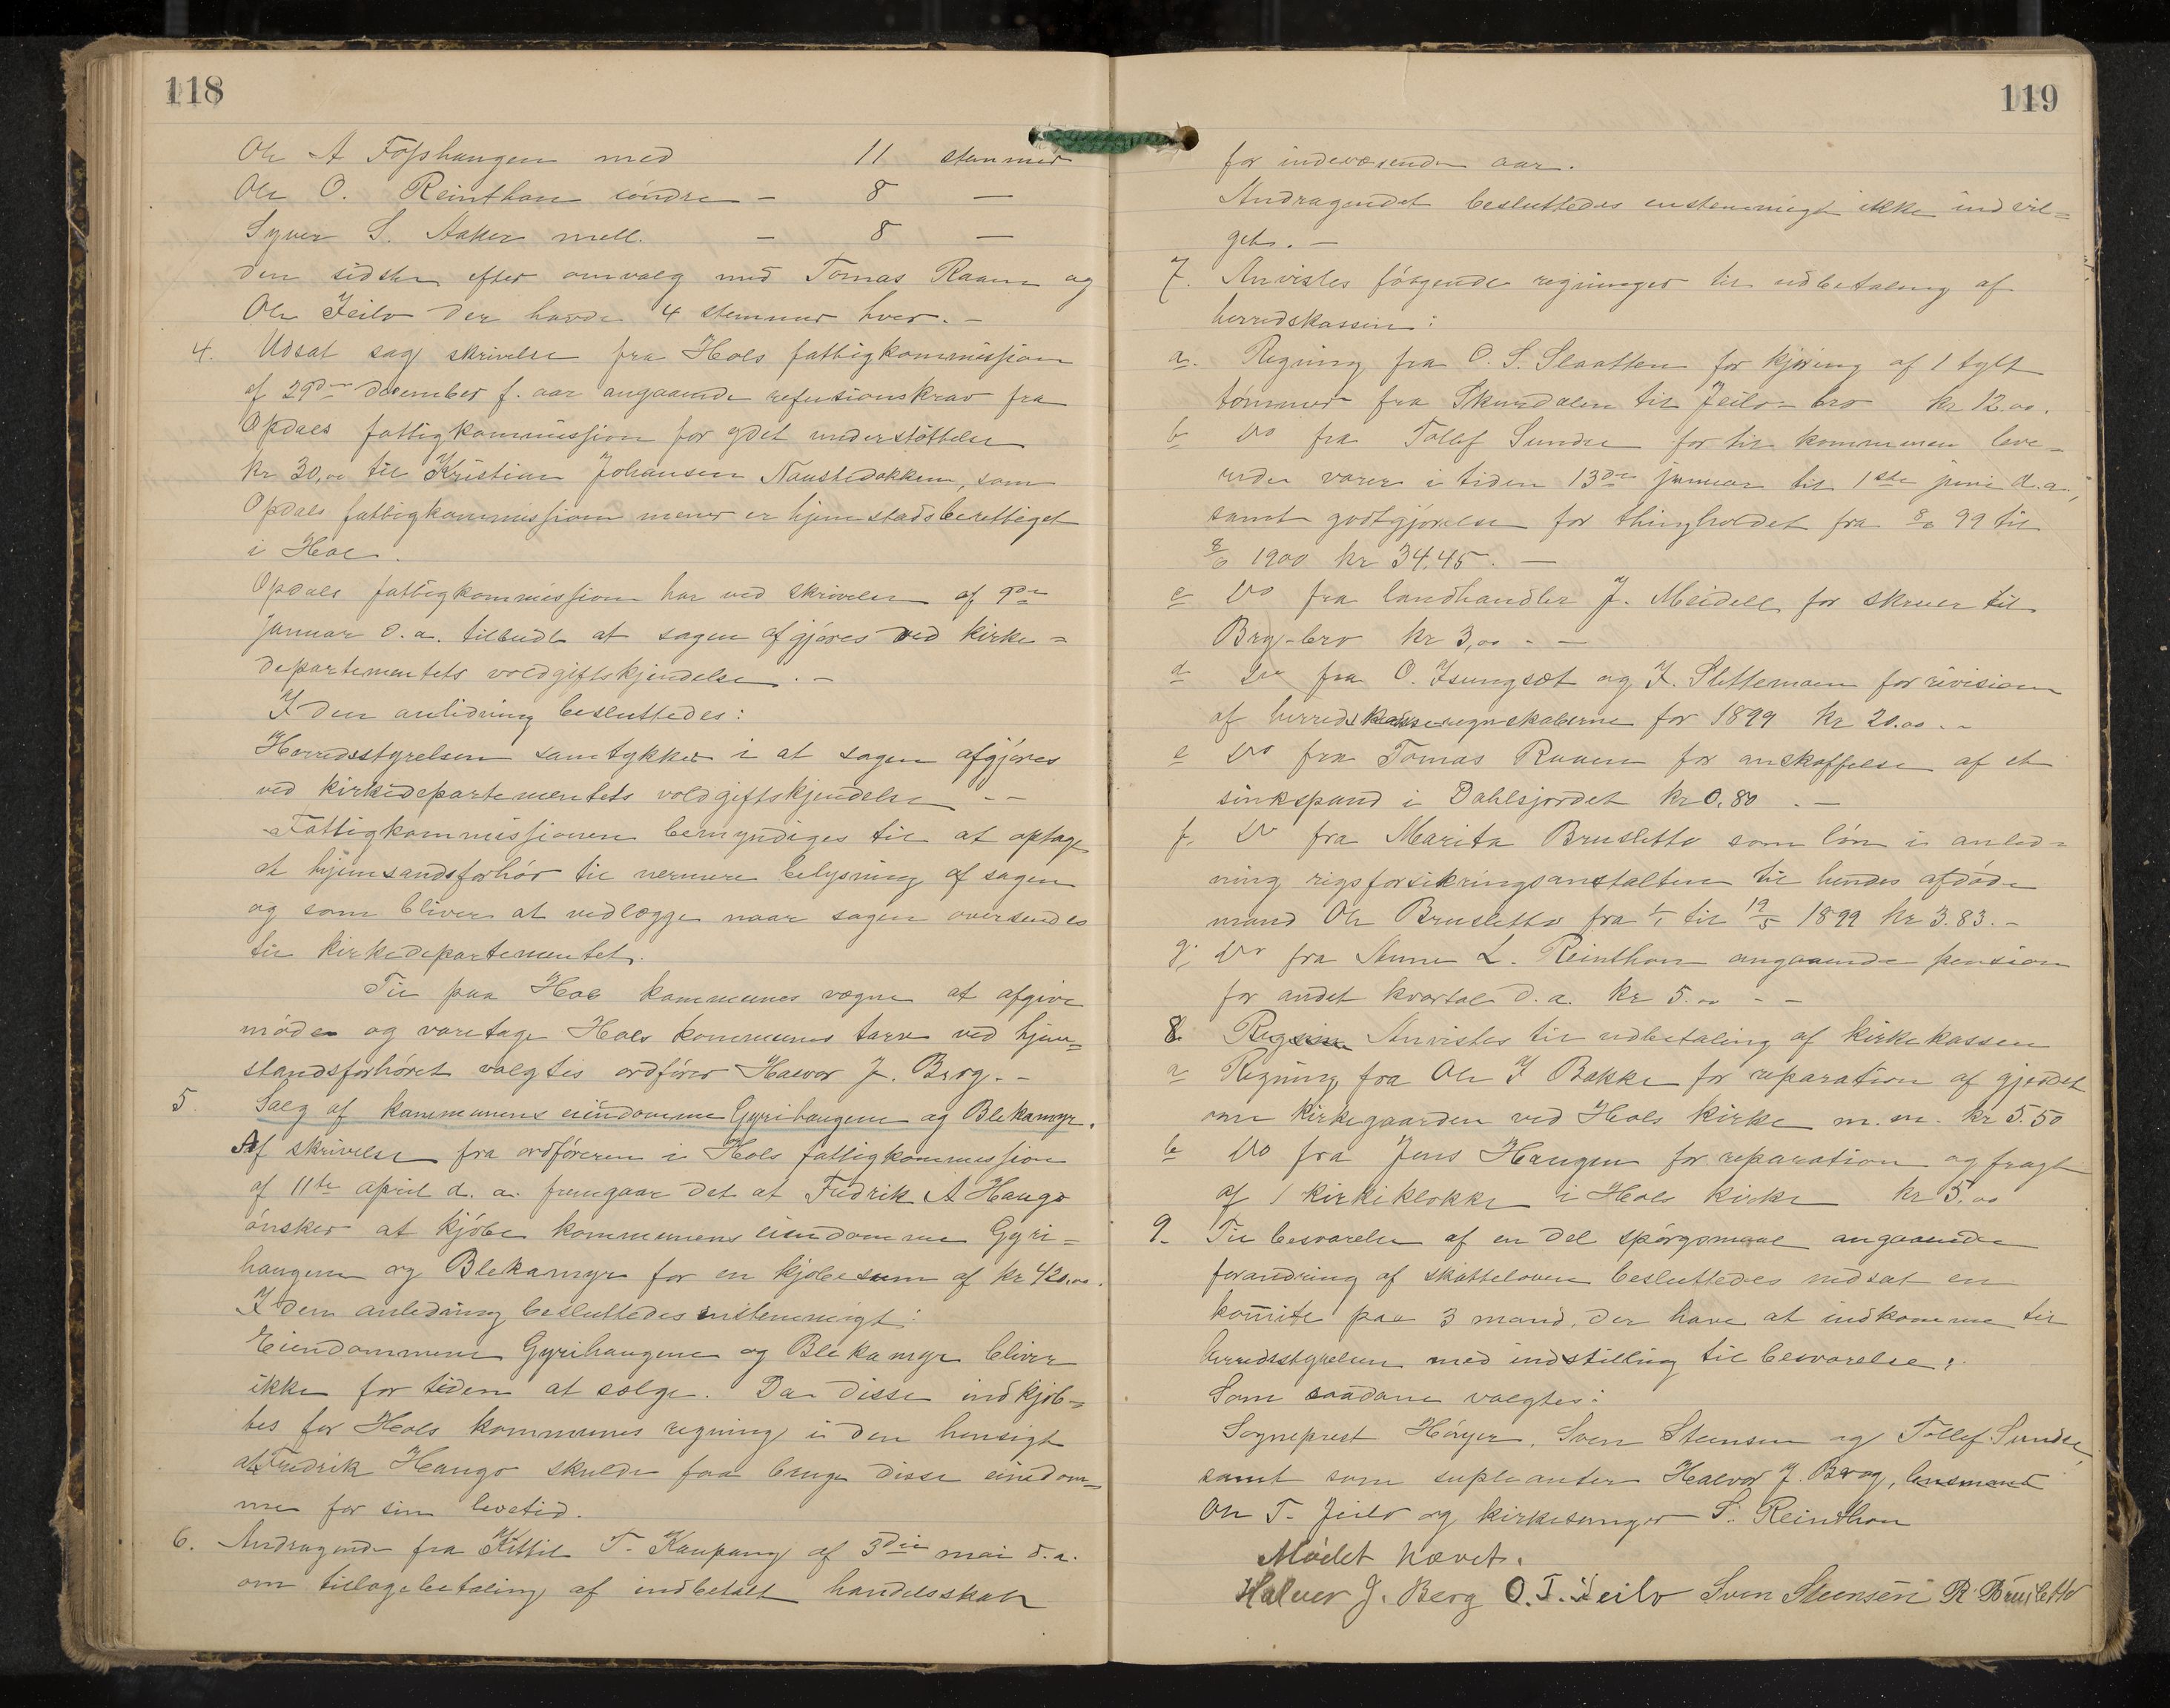 118
Ole A Fosshaugen med 11 stemmer
Ole O. Reinthon söndre – 8 —
Syver S. Aaker mell. – 8 —
den sidste efter omvalg med Tomas Raaen og
Ole Jeilo der havde 4 stemmer hver. –
4. Udsat sag skrivelse fra Hols fattigkommission
af 29de december f. aar angaaende refusionskrav fra
Opdals fattigkommission for ydet understöttelse
kr 30,00 til Kristian Johansen Naustedokken, som
Opdals fattigkommission mener er hjemstadsberettiget
i Hol.
Opdals fattigkommission har ved skrivelse af 9de
januar d.a. tilbudt at sagen afgjöres ved kirke=
departementets voldgiftskjendelse. –
I den anledning besluttedes:
Herredsstyrelsen samtykker i at sagen afgjöres
ved kirkedepartementets voldgiftskjendelse – –
Fattigkommissionen bemyndiges til at optage
et hjemsandsforhör til nermere belysning af sagen
og som bliver at vedlægge naar sagen oversendes
til kirkedepartementet.
Til paa Hol kommunes vegne at afgive
möde og varetage Hols kommunes tarv ved hjem=
standsforhöret valgtes ordförer Halvor J. Berg. –
5. Salg af kommunens eiendomme Gyrihaugene og Blekamyr.
Af skrivelse fra ordföreren i Hols fattigkommission
af 11te april d. a. fremgaar det at Fredrik A Haugo
önsker at kjöbe kommunens eiendomme Gyri=
haugene og Blekamyr for en kjöbesum af kr 420.00.
I den anledning besluttedes enstemmigt:
Eiendommene Gyrihaugene og Blekamyr bliver
ikke for tiden at sælge. Da disse indkjöb=
tes for Hols kommunes regning i den hensigt
at Fredrik Haugo skulde faa bruge disse eiendom=
me for sin levetid.
6. Andragende fra Kittil T. Kaupang af 3die mai d.a.
om tilbagebetaling af indbetalt handelsskat
119
for indeværende aar.
Andragendet besluttedes enstemmigt ikke indvil=
get. –
7. Anvistes fölgende regninger til udbetaling af
herredskassen:
a. Regning fra O. S. Slaatten for kjöring af 1 tylt
tömmer fra Skurdalen til Jeilo-bro kr 12.00.
b Do fra Tollef Sundre for til kommunen leve-
rede varer i tiden 13de januar til 1ste juni d.a.,
samt godtgjörelse for thingholdet fra 8/6 99 til
8/6 1900 kr 34.45. —
c Do fra landhandler J. Meidell for skruer til
Brg-bro kr 3,00 - —
d Do fra O. Isungset og K. Slettemoen for revision
af herredskasseregnskaberne for 1899 kr 20.00. –
e Do fra Tomas Raaen for anskaffelse af et
sinkspand i Dahlsjordet kr 0.80. —
f. Do fra Marita Brusletto som lön i anled=
ning rigsforsikringsanstalten til hendes afdöde
mand Ole Brusletto fra 1/1 til 19/5 1899 kr 3.83. –
g. Do fra Anne L. Reinthon angaaende pension
for andet kvartal d.a. kr 5.00 - –
8. Anvistes til udbetaling af kirkekassen
a Regning fra Ole I Bakke for reparation af gjerdet
om kirkegaarden ved Hols kirke m.m. kr 5.50
b Do fra Jens Haugen for reparation og fragt
af 1 kirkeklokke i Hols kirke kr 5.00
9. Til besvarelse af en del spörgsmaal angaaende
forandring af skatteloven besluttedes nedsat en
komite paa 3 mand, der have at indkomme til
herredsstyrelsen med indstilling til besvarelse.
Som saadane valgtes:
Sogneprest Höyer, Sven Steensen og Tollef Sundre,
samt som supleanter Halvor J. Berg, lensmand
Ole T. Jeilo og kirkesanger S. Reinthon
Mödet hævet.
Halvor J. Berg O.T. Jeilo Sven Steensen R Brusletto